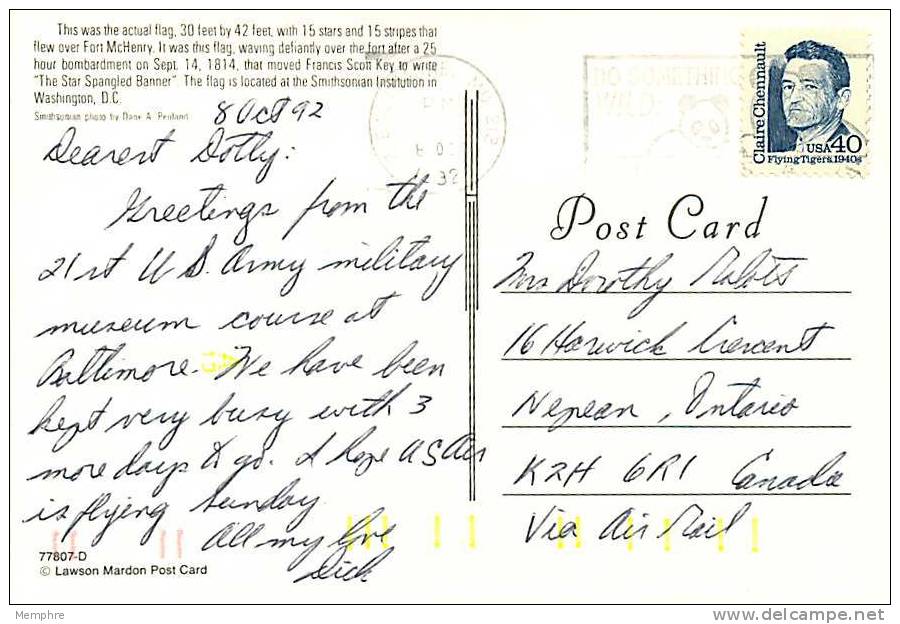 This was the actual flag, 30 feet by 42 feet, with 15 stars and 15 stripes that
flew over Fort McHenry. It was this flag, waving defiantly over the fort after a 25
hour bombardment on Sept. 14, 1814, that moved Francis Scott Key to write
"The Star Spangled Banner". The flag is located at the Smithsonian Institution in
Washington, D.C.
Smithsonian photo by Dane A. Penland
8 Oct 92
Dearest Dotty:
Greetings from the
21st U.S. Army military
museum course at
Baltimore. We have been
kept very busy with 3
more days to go. I hope US Air
is flying Sunday
All my love
Dick
77807-D
© Lawson Mardon Post Card
Claire Chennault
USA 40
Flying Tigers, 1940s
Post Card
Mrs Dorothy
16 Harwick Crescent
Nepean, Ontario
K2H 6R1 Canada
Via Air Mail
Memphre
http://www.delcampe.net